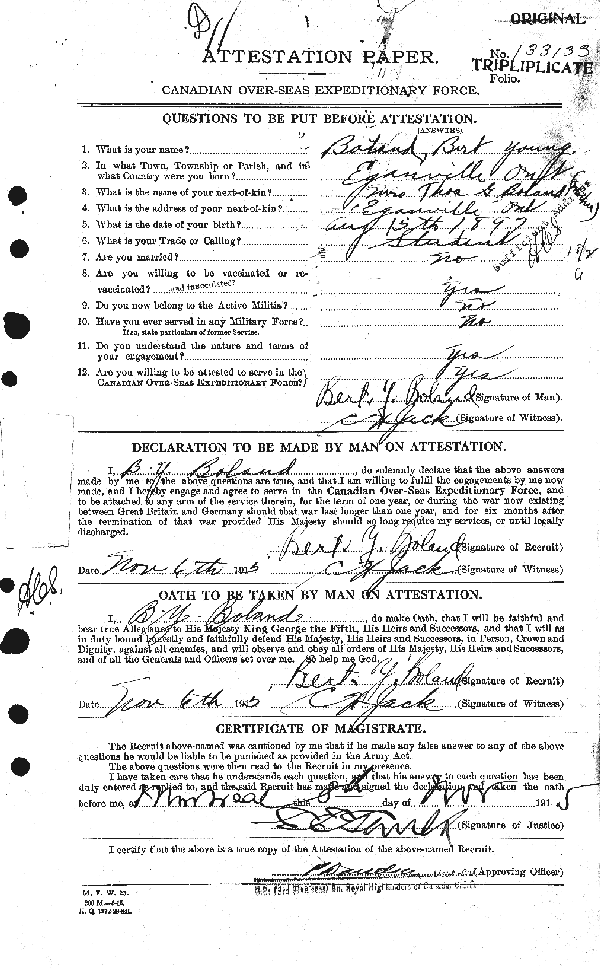 ORIGINAL
ATTESTATION PAPER.
No. 133133
TRIPLIPLICATE
Folio.
CANADIAN OVER-SEAS EXPEDITIONARY FORCE.
QUESTIONS TO BE PUT BEFORE ATTESTATION.
(ANSWERS)
1. What is your name? Boland, Bert Young
2. In what Town, Township or Parish, and in what Country were you born? Eganville Ont
3. What is the name of your next-of-kin? Thos G Boland
4. What is the address of your next-of-kin? Eganville Ont
5. What is the date of your birth? Aug 15th 1897
6. What is your Trade or Calling? Student
7. Are you married? no
8. Are you willing to be vaccinated or re-
vaccinated? and inoculated? Yes
9. Do you now belong to the Active Militia? no
10. Have you ever served in any Military Force? no
If so, state particulars of former Service.
11. Do you understand the nature and terms of
your engagement? Yes
12. Are you willing to be attested to serve in the
CANADIAN OVER-SEAS EXPEDITIONARY FORCE? Yes
Bert. Y. Boland (Signature of Man).
C H Jack (Signature of Witness).
DECLARATION TO BE MADE BY MAN ON ATTESTATION.
I, B Y Boland, do solemnly declare that the above answers
made by me to the above questions are true, and that I am willing to fulfil the engagements by me now
made, and I hereby engage and agree to serve in the Canadian Over-Seas Expeditionary Force, and
to be attached to any arm of the service therein, for the term of one year, or during the war now existing
between Great Britain and Germany should that war last longer than one year, and for six months after
the termination of that war provided His Majesty should so long require my services, or until legally
discharged.
Bert. Y. Boland (Signature of Recruit)
Date Nov 6th 1915 C H Jack (Signature of Witness)
OATH TO BE TAKEN BY MAN ON ATTESTATION.
I, B Y Boland, do make Oath, that I will be faithful and
bear true Allegiance to His Majesty King George the Fifth, His Heirs and Successors, and that I will as
in duty bound honestly and faithfully defend His Majesty, His Heirs and Successors, in Person, Crown and
Dignity, against all enemies, and will observe and obey all orders of His Majesty, His Heirs and Successors,
and of all the Generals and Officers set over me. So help me God.
Bert. Y. Boland (Signature of Recruit)
Date Nov 6th 1915 C H Jack (Signature of Witness)
CERTIFICATE OF MAGISTRATE.
The Recruit above-named was cautioned by me that if he made any false answer to any of the above
questions he would be liable to be punished as provided in the Army Act.
The above questions were then read to the Recruit in my presence.
I have taken care that he understands each question, and that his answer to each question has been
duly entered as replied to, and the said Recruit has made and signed the declaration and taken the oath
before me, at Montreal this 8th day of Nov 1915
(Signature of Justice)
I certify that the above is a true copy of the Attestation of the above-named Recruit.
(Approving Officer)
Royal Highlanders of Canada
M. F. W. 23.